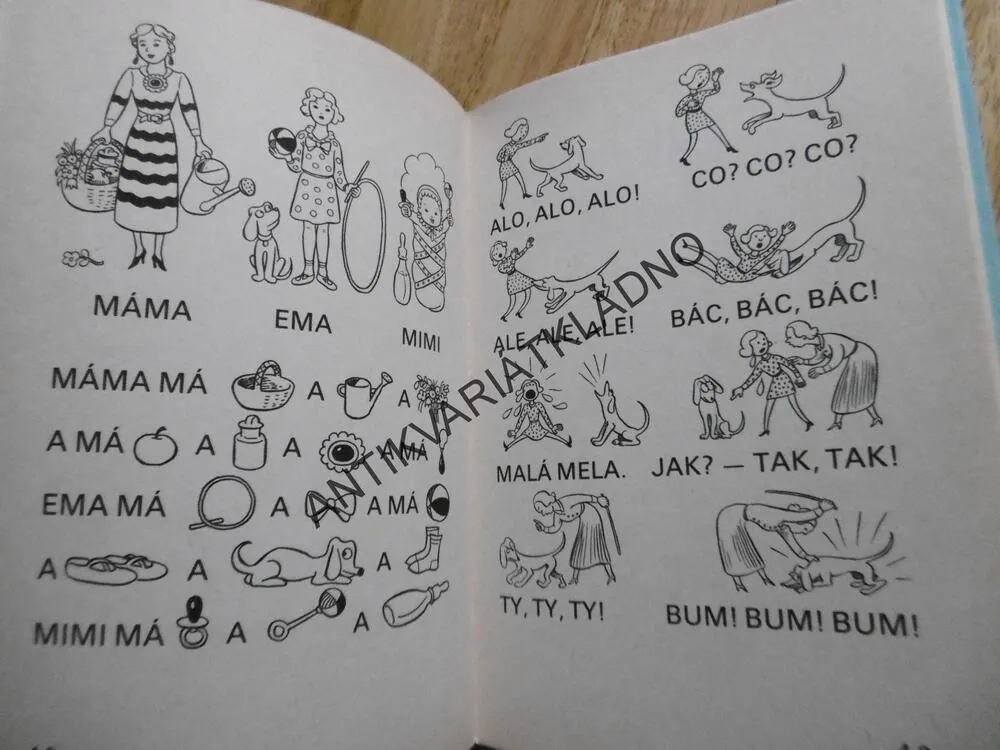 MÁMA
EMA
MIMI
MÁMA MÁ A A
A MÁ A A A MÁ
EMA MÁ A A MÁ
A A A
MIMI MÁ A A
ALO, ALO, ALO!
CO? CO? CO?
ALE, ALE, ALE!
BÁC, BÁC, BÁC!
MALÁ MELA.
JAK? — TAK, TAK!
TY, TY, TY!
BUM! BUM! BUM!
ANTIKVARIÁTKLADNO